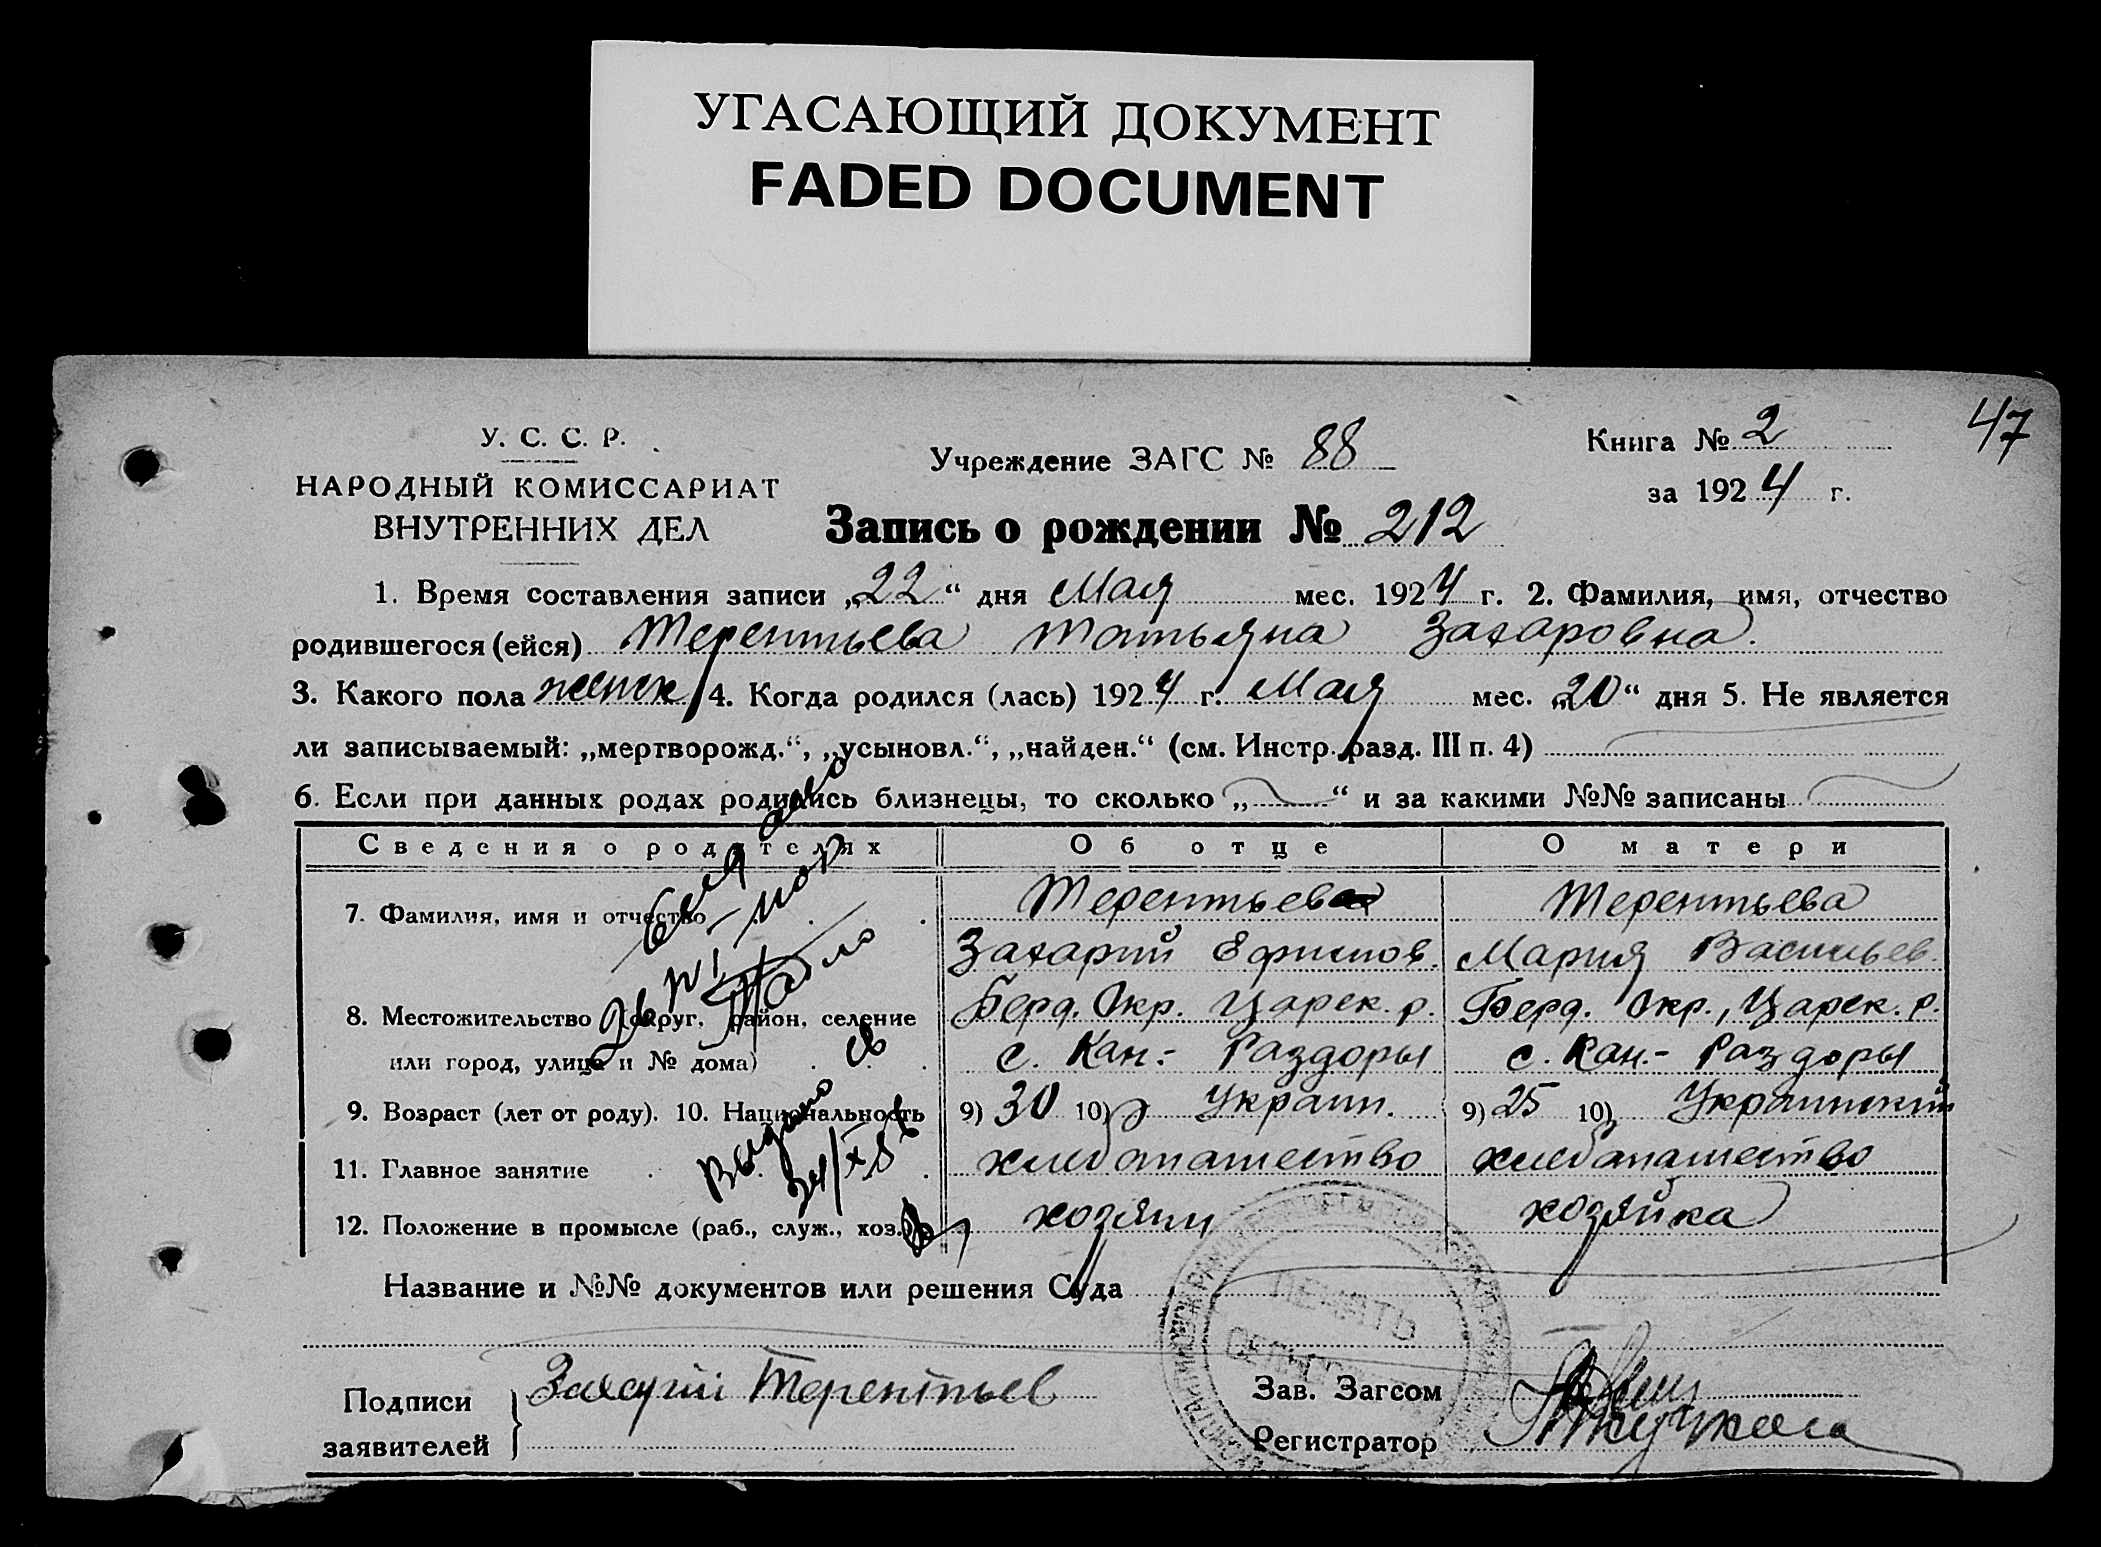 УГАСАЮЩИЙ ДОКУМЕНТ
FADED DOCUMENT
47
У. С. С. Р.
НАРОДНЫЙ КОМИССАРИАТ
ВНУТРЕННИХ ДЕЛ
Учреждение ЗАГС № 88
Книга № 2
за 1924 г.
Запись о рождении № 212
1. Время составления записи „22“ дня Мая мес. 1924 г. 2. Фамилия, имя, отчество
родившегося (ейся) Терентьева Татьяна Захаровна.
3. Какого пола женск 4. Когда родился (лась) 1924 г. Мая мес. „20“ дня 5. Не является
ли записываемый: „мертворожд.“, „усыновл.“, „найден.“ (см. Инстр. разд. III п. 4)
6. Если при данных родах родились близнецы, то сколько „ “ и за какими №№ записаны
Сведения о родителях Об отце О матери
7. Фамилия, имя и отчество Терентьев Терентьева
Захарий Ефимов. Мария Васильев.
8. Местожительство (округ, район, селение Берд. Окр. Царек. р. Берд. Окр., Царек. р.
или город, улица и № дома) с. Кан.- Раздоры с. Кан.- Раздоры
9. Возраст (лет от роду). 10. Национальность 9) 30 10) Украин. 9) 25 10) Украинский
11. Главное занятие хлебопашество хлебопашество
12. Положение в промысле (раб., служ., хоз. хозяин хозяйка
Выдано св
Название и №№ документов или решения Суда
ПЕЧАТЬ
Подписи
заявителей
Захарий Терентьев
Зав. Загсом
Регистратор